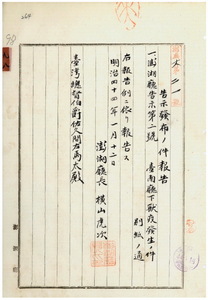 告示發布ノ件報告
一、澎湖廳告示第二號 臺南廳下獸疫發生ノ件
別紙ノ通
右報告例ニ依リ報告ス
明治四十四年一月十二日
澎湖廳長 横山虎次
臺灣總督伯爵佐久間左馬太殿